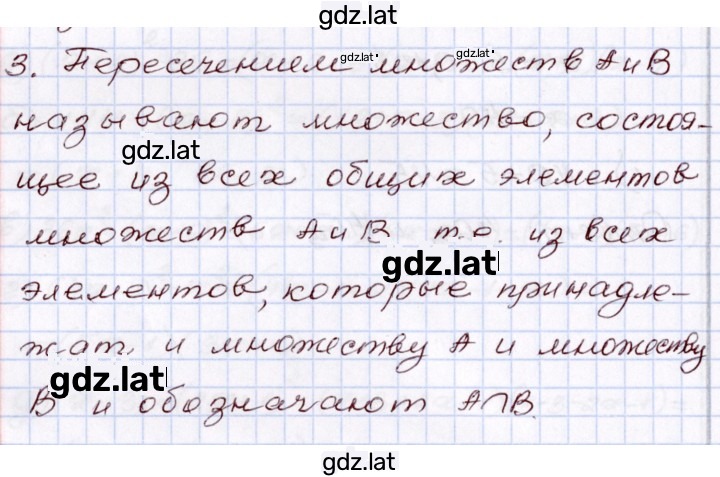 gdz.lat
gdz.lat
3. Пересечением множеств A и B
называют множество, состоя-
gdz.lat
щее из всех общих элементов
множеств A и B т.е. из всех
gdz.lat
элементов, которые принадле-
жат и множеству A и множеству
gdz.lat
B и обозначают A∩B.
gdz.lat